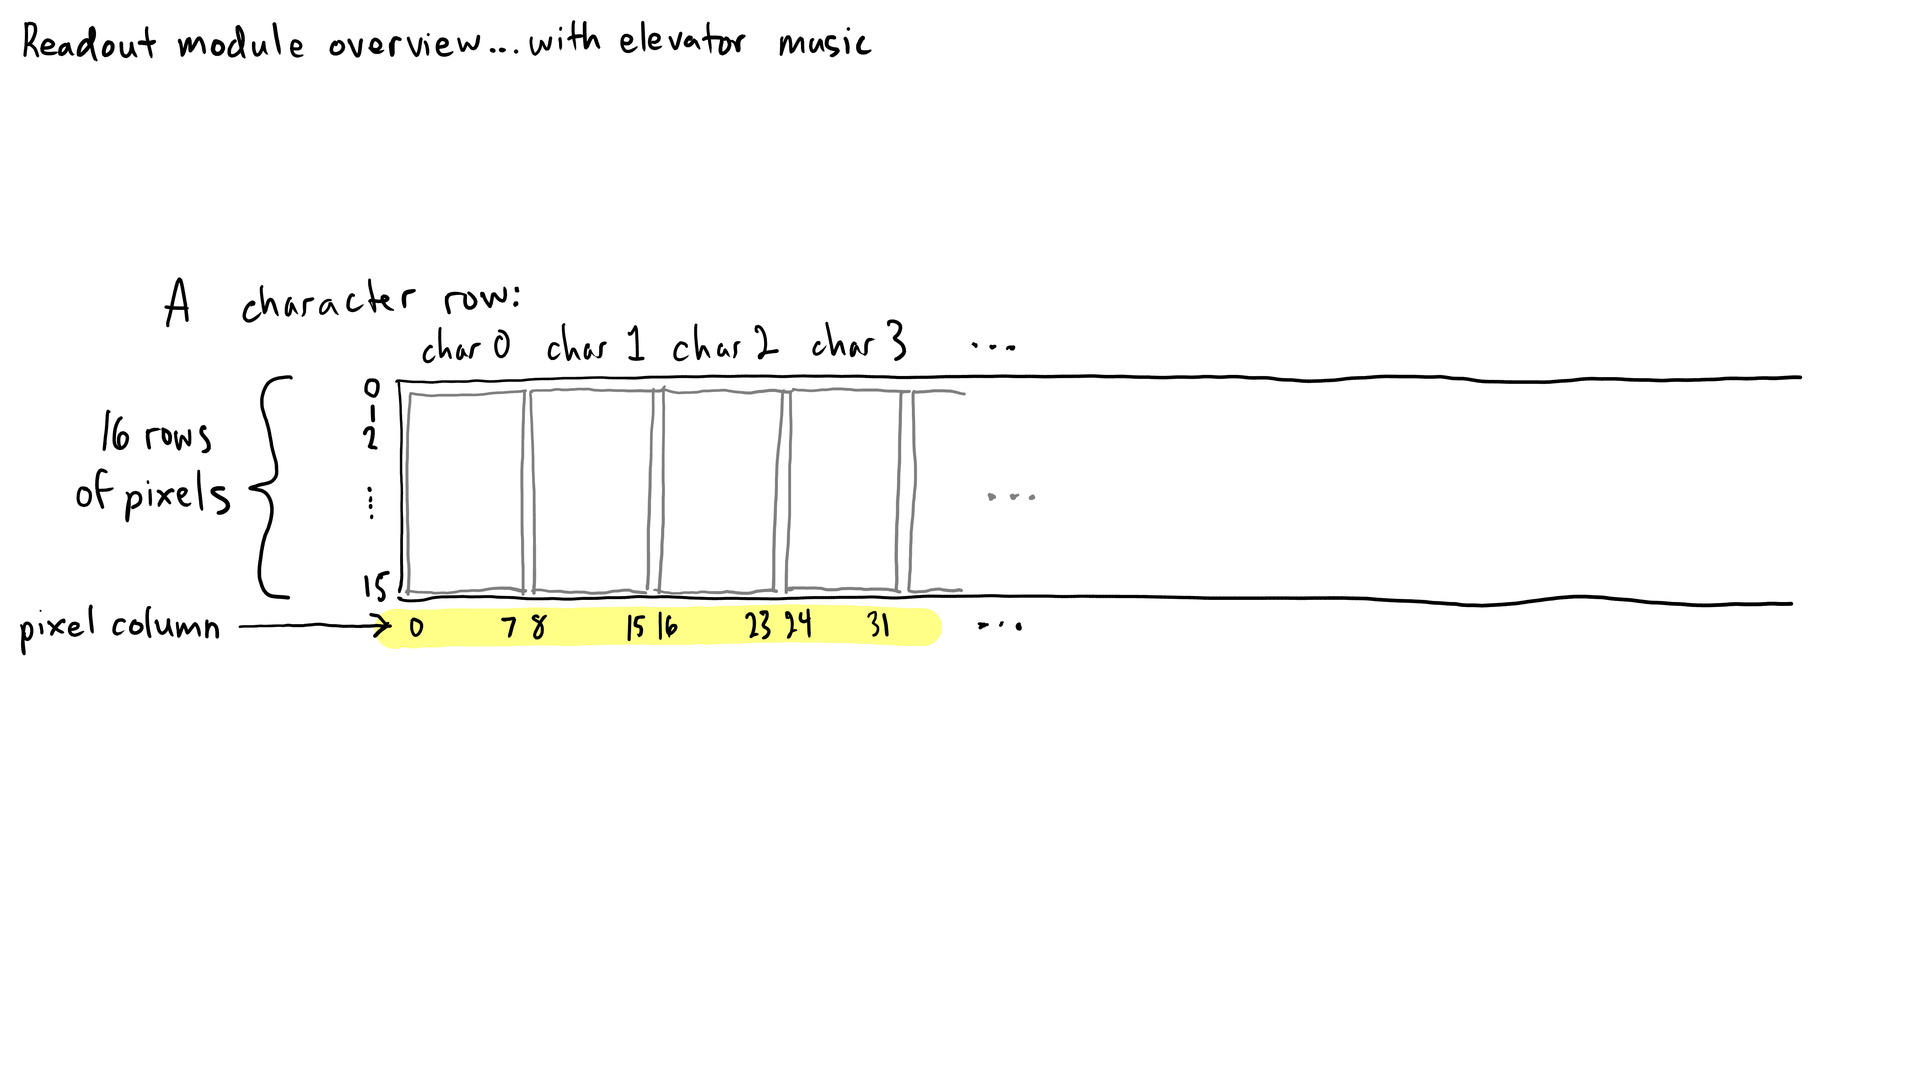 Readout module overview...with elevator music
A character row:
char 0 char 1 char 2 char 3 ...
0
1
2
16 rows
of pixels
...
...
15
pixel column 0 7 8 15 16 23 24 31 ...